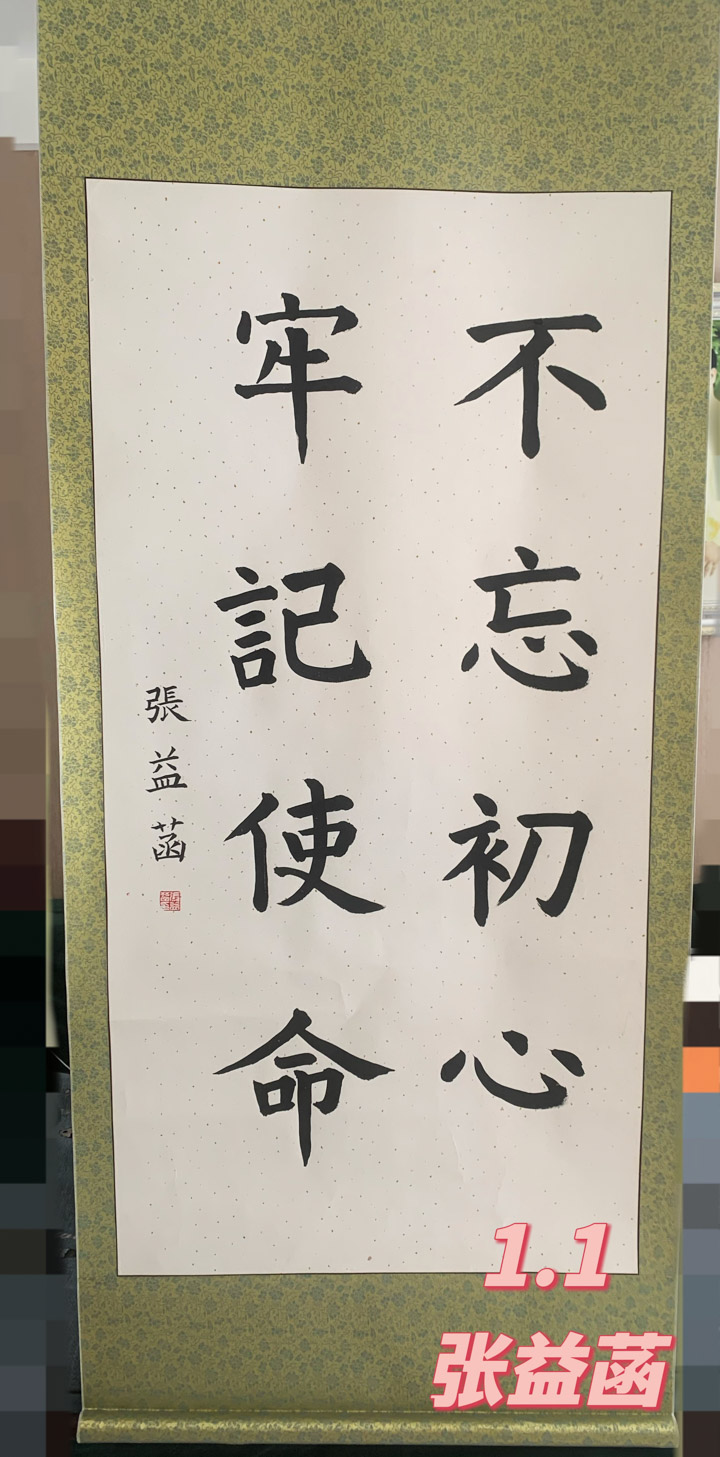 不忘初心
牢記使命
張益菡
1.1
张益菡